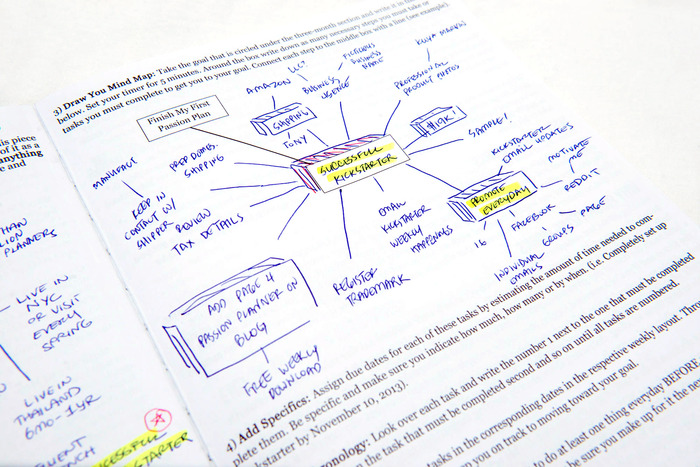 3) Draw You Mind Map: Take the goal that is circled under the three-month section and write it in the
below. Set your timer for 5 minutes. Around the box write down as many necessary steps you must take or
tasks you must complete to get you to your goal. Connect each step to the middle box with a line (see example).
Finish My First
Passion Plan
AMAZON
LLC?
BUSINESS
FICTITIOUS
BUSINESS
NAME
PROFESSIONAL
PRODUCT PHOTOS
SHIPPING
TONY
SUCCESSFUL
KICKSTARTER
SAMPLE!
KICKSTARTER
EMAIL UPDATES
MOTIVATE
ME
REDDIT
PROMOTE
EVERYDAY
FACEBOOK
PAGE
GROUPS
IG
INDIVIDUAL
EMAILS
MANUFACT
PREP DOMES.
SHIPPING
KEEP IN
CONTACT W/
SHIPPER
REVIEW
TAX DETAILS
EMAIL
KICKSTARTER
WEEKLY
HAPPENINGS
REGISTER
TRADEMARK
ADD PAGE 4
PASSION PLANNER ON
BLOG
FREE WEEKLY
DOWNLOAD
his piece
of it as a
anything
e and
PLANNERS
LIVE IN
NYC
OR VISIT
EVERY
SPRING
LIVE IN
THAILAND
6MO-1YR
4) Add Specifics: Assign due dates for each of these tasks by estimating the amount of time needed to com-
plete them. Be specific and make sure you indicate how much, how many or by when. (i.e. Completely set up
kstarter by November 10, 2013).
onology: Look over each task and write the number 1 next to the one that must be completed
the task that must be completed second and so on until all tasks are numbered.
tasks in the corresponding dates in the respective weekly layout.
you on track to moving toward your goal.
to do at least one thing everyday BEFORE
be sure you make up for it the